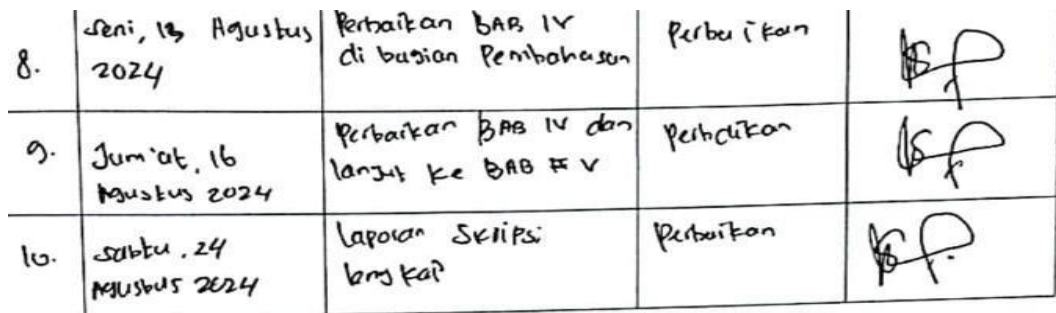 8.
Seni, 13 Agustus
2024
Perbaikan BAB IV
di bagian Pembahasan
Perbaikan
9.
Jum'at, 16
Agustus 2024
Perbaikan BAB IV dan
lanjut ke BAB V
Perbaikan
10.
Sabtu, 24
Agustus 2024
Laporan Skripsi
lengkap
Perbaikan